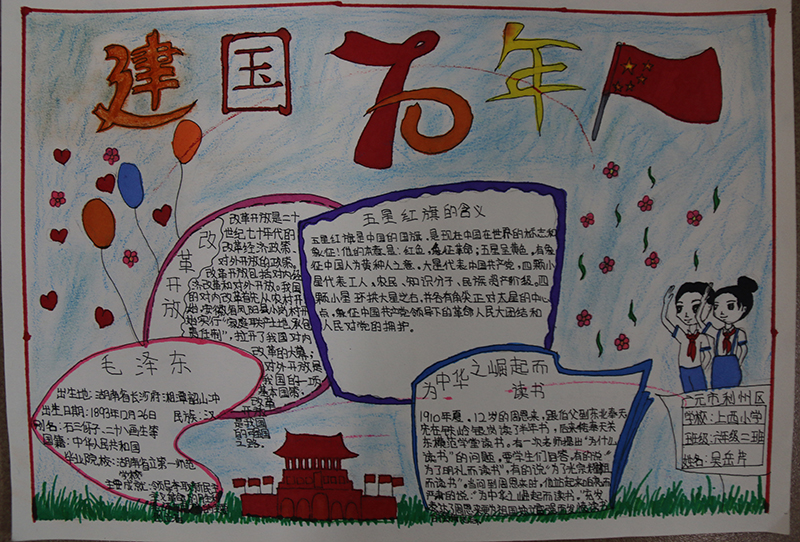 建国70年
改革开放
改革开放是二十
世纪七十年代的
改革经济政策,
对外开放的政策。
改革开放包括对内经
济改革和对外开放。我国
的对内改革首先从农村开
安徽省凤阳县小岗村开
始实行"家庭联产土地承包
责任制",拉开了我国对内
改革的大幕;
对外开放是
我国的一项
基本国策。
改革
开放
是我国
的强国
之路。
五星红旗的含义
五星红旗是中国的国旗,是现在中国在世界的标志和
象征!他的含意是:红色,象征革命;五星呈黄色,有象
征中国人为黄种人之意。大星代表中国共产党,四颗小
星代表工人,农民、知识分子,民族资产阶级。四
颗小星环拱大星之右,并各有一角尖正对大星的中心
点,象征中国共产党领导下的革命人民大团结和
人民对党的拥护。
毛泽东
出生地:湖南省长沙府湘潭韶山冲
出生日期:1893年12月26日 民族:汉
别名:石三伢子、二十八画生等
国籍:中华人民共和国
毕业院校:湖南省立第一师范
学校
主要成就:领导中国新民主
为中华之崛起而
读书
1910年夏,12岁的周恩来,跟伯父到东北奉天
先在铁岭银岗读了半年书,后来转奉天关
东模范学堂读书。有一次老师提出"为什么
读书"的问题,要学生们回答,有的说"
为了明礼而读书",有的说"为了光宗耀祖
而读书"。当问到周恩来时,他站起来响亮而
严肃的说:"为中华之崛起而读书。"充分
表达了周恩来
广元市利州区
学校:上西小学
班级:六年级二班
姓名:吴岳芹